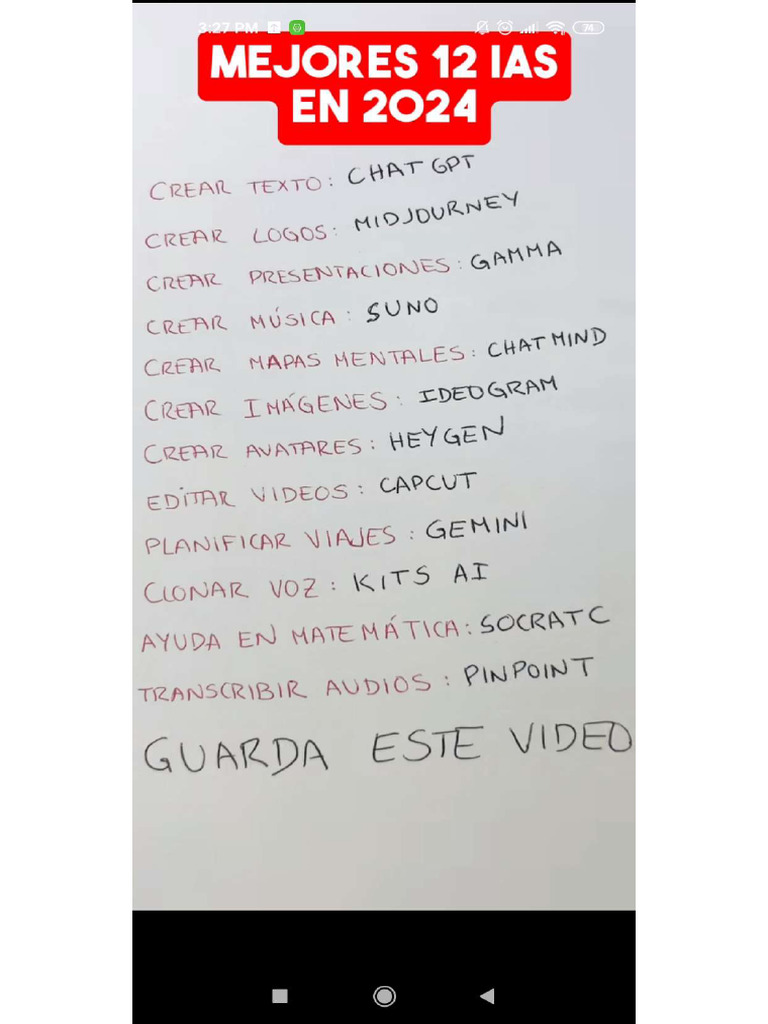 3:27 PM
74
MEJORES 12 IAS
EN 2024
CREAR TEXTO: CHAT GPT
CREAR LOGOS: MIDJOURNEY
CREAR PRESENTACIONES: GAMMA
CREAR MÚSICA: SUNO
CREAR MAPAS MENTALES: CHAT MIND
CREAR IMÁGENES: IDEOGRAM
CREAR AVATARES: HEYGEN
EDITAR VIDEOS: CAPCUT
PLANIFICAR VIAJES: GEMINI
CLONAR VOZ: KITS AI
AYUDA EN MATEMÁTICA: SOCRATC
TRANSCRIBIR AUDIOS: PINPOINT
GUARDA ESTE VIDEO